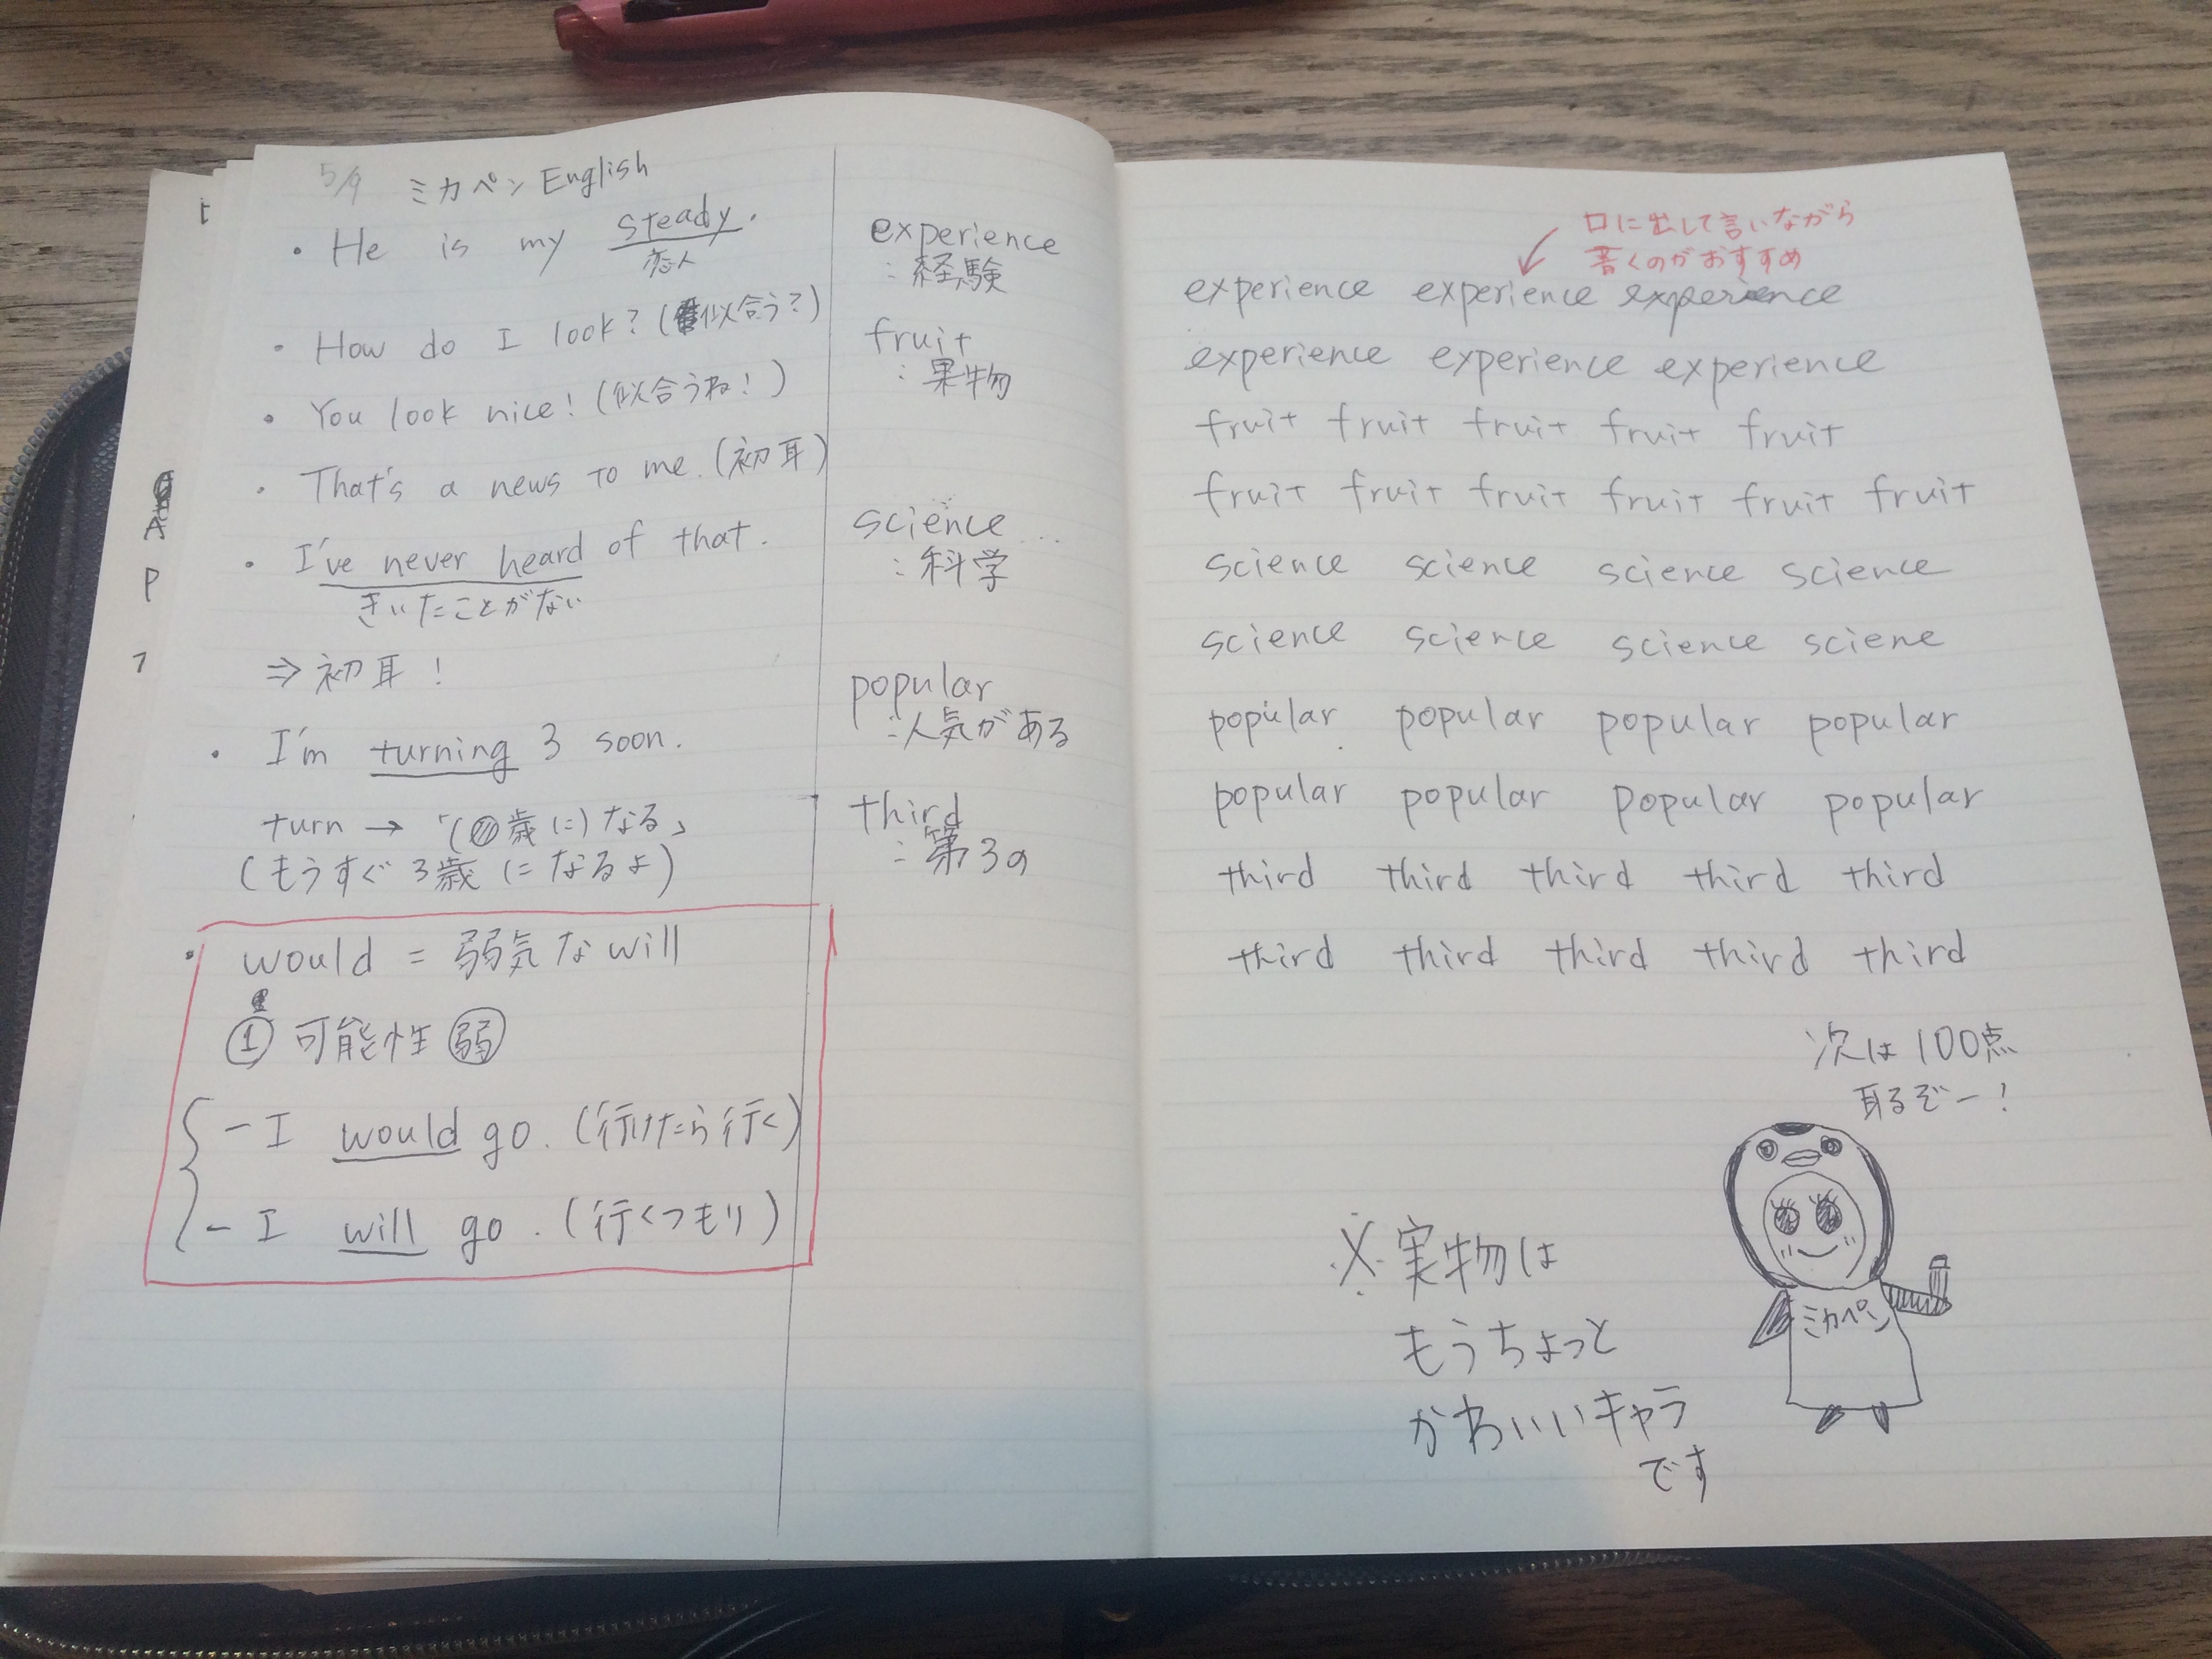 5/9 ミカペン English
・He is my steady.
恋人
・How do I look? (似合う?)
・You look nice! (似合うね!)
・That's a news to me. (初耳)
・I've never heard of that.
きいたことがない
⇒ 初耳!
・I'm turning 3 soon.
turn → 「(歳に)なる」
(もうすぐ3歳になるよ)
・would = 弱気なwill
① 可能性 弱
- I would go. (行けたら行く)
- I will go. (行くつもり)
experience
: 経験
fruit
: 果物
science
: 科学
popular
: 人気がある
third
: 第3の
t
A
P
7
口に出して言いながら
書くのがおすすめ
experience experience experience
experience experience experience
fruit fruit fruit fruit fruit
fruit fruit fruit fruit fruit fruit
science science science science
science science science sciene
popular popular popular popular
popular popular popular popular
third third third third third
third third third third third
次は100点
取るぞー!
ミカペン
※実物は
もうちょっと
かわいいキャラ
です